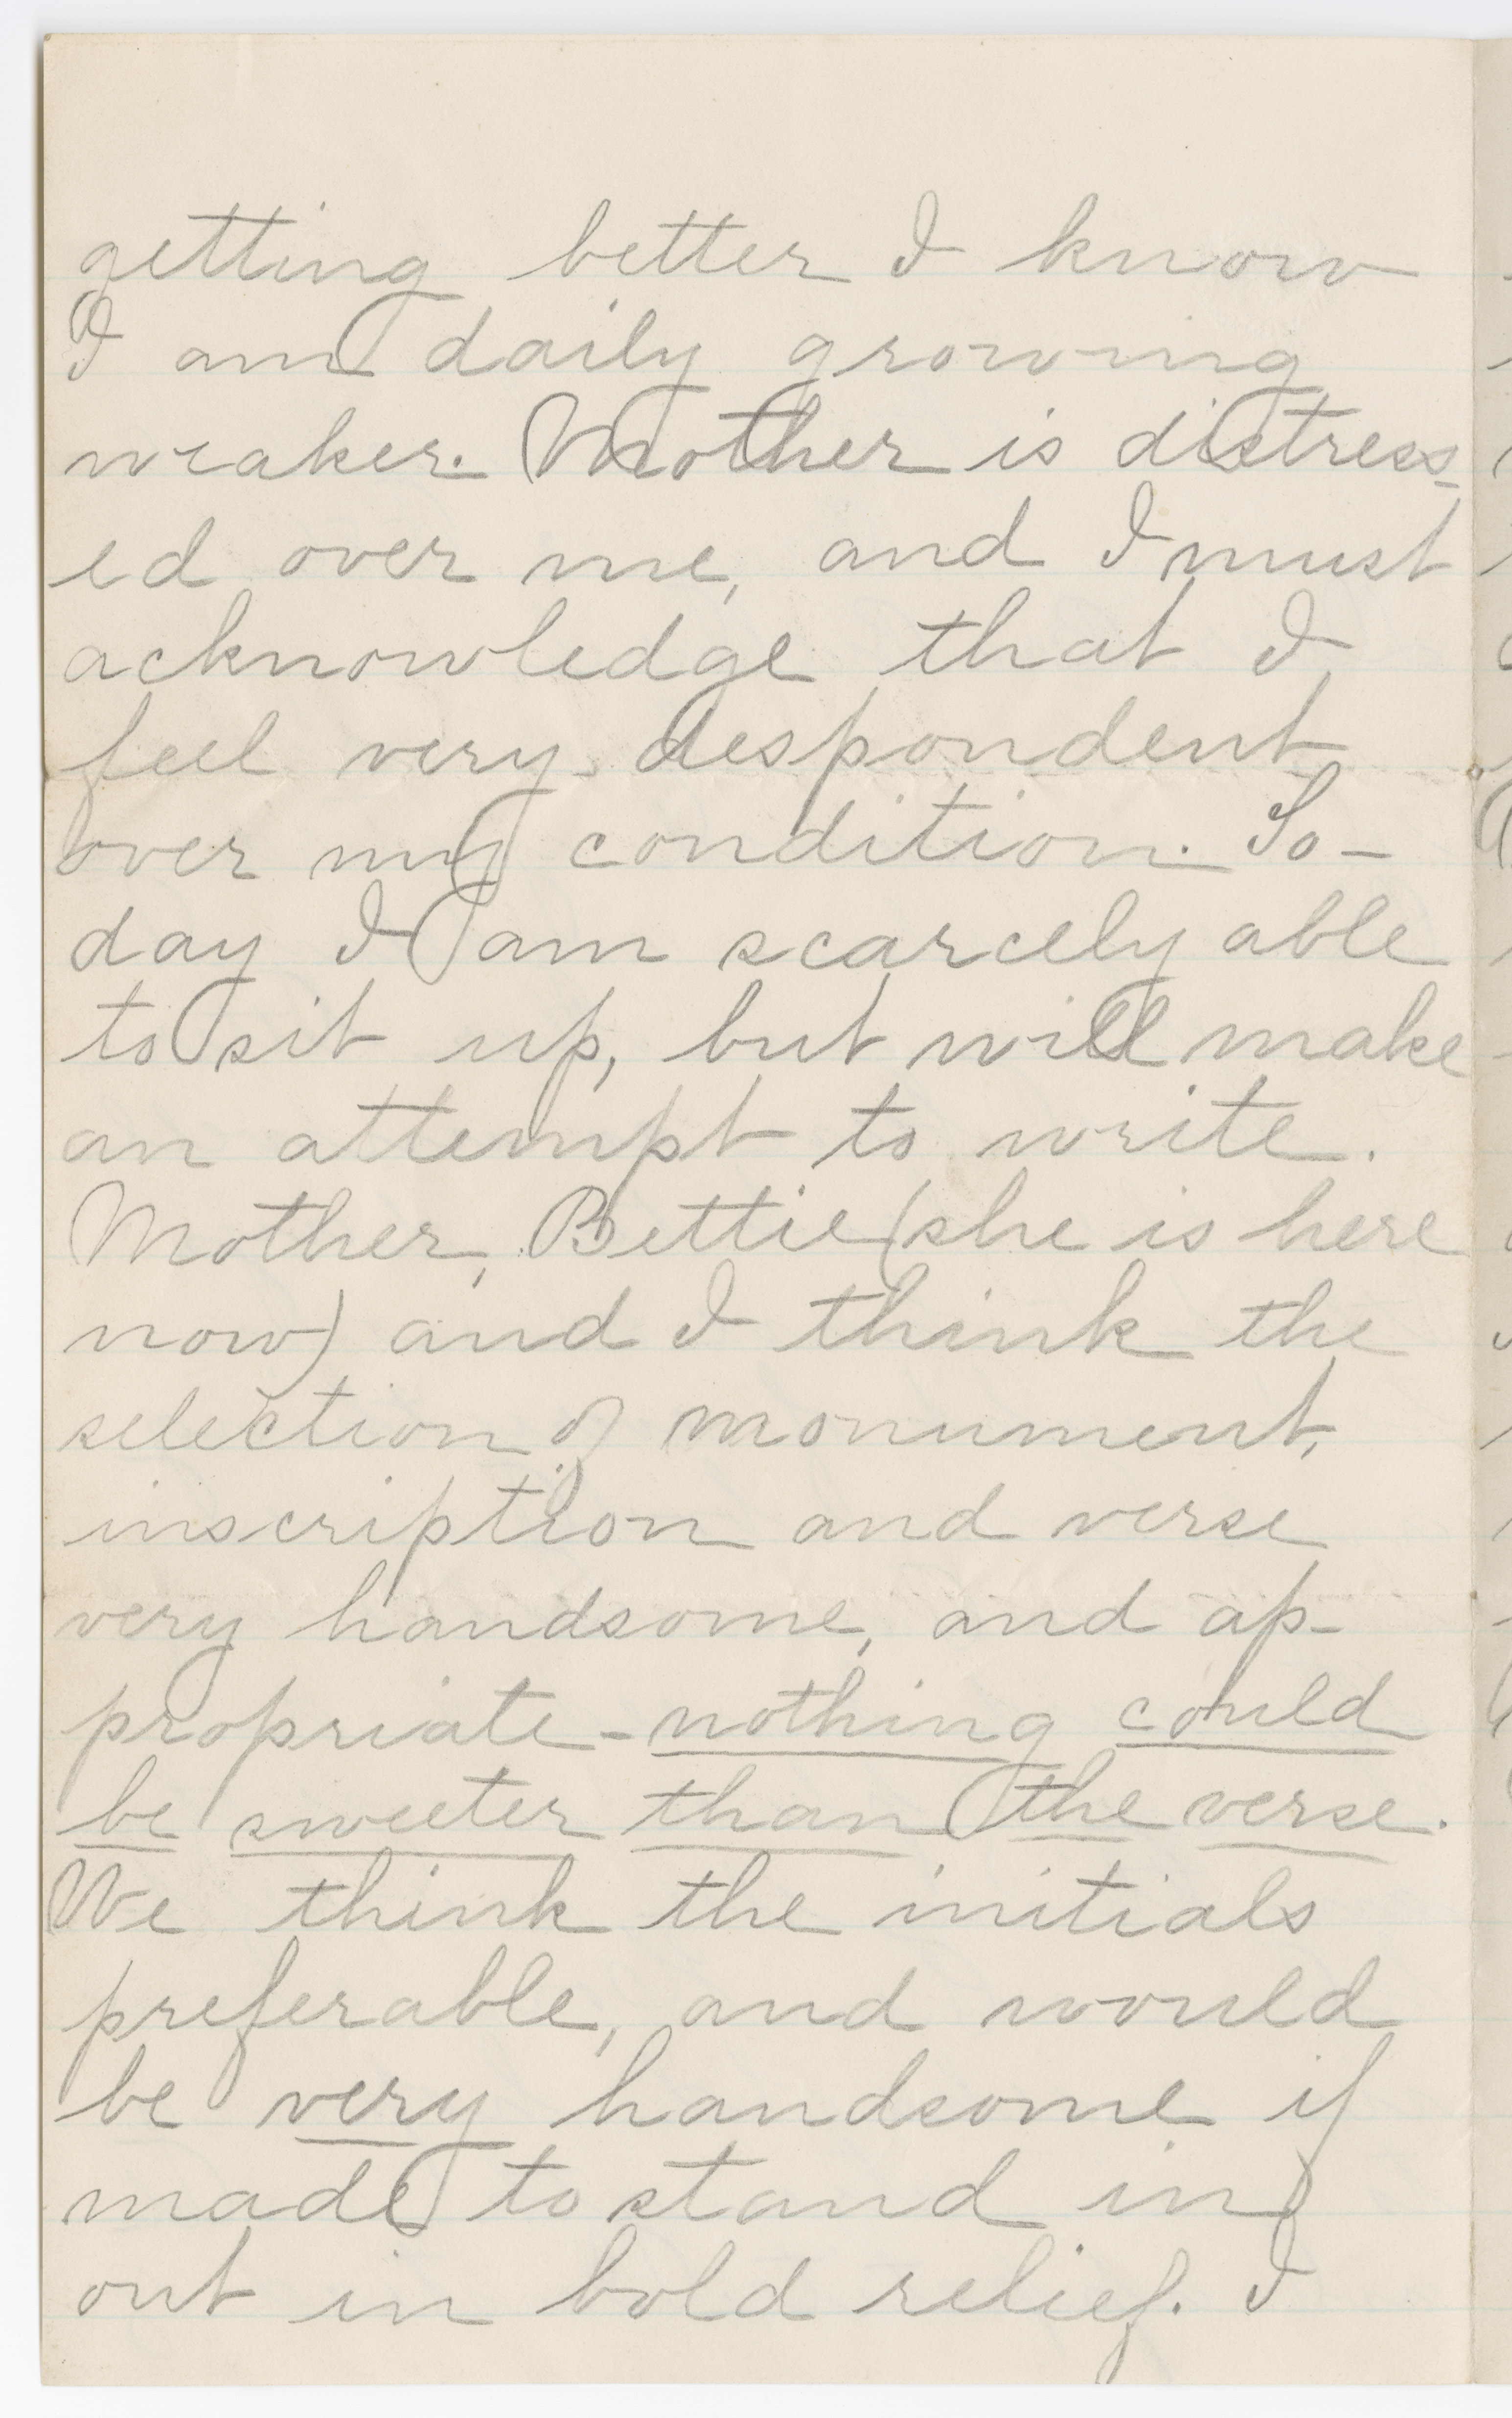 getting better I know
I am daily growing
weaker. Mother is distress-
ed over me, and I must
acknowledge that I
feel very despondent
over my condition. To-
day I am scarcely able
to sit up, but will make
an attempt to write.
Mother, Bettie (she is here
now) and I think the
selection of monument,
inscription and verse
very handsome, and ap-
propriate - nothing could
be sweeter than the verse.
We think the initials
preferable, and would
be very handsome if
made to stand in
out in bold relief. I